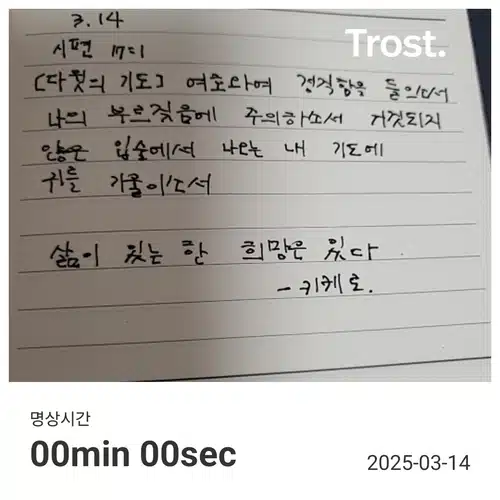 3.14
Trost.
시편 17:1
[다윗의 기도] 여호와여 정직함을 들으소서
나의 부르짖음에 주의하소서 거짓되지
않은 입술에서 나오는 내 기도에
귀를 기울이소서
삶이 있는 한 희망은 있다
- 키케로.
명상시간
00min 00sec
2025-03-14